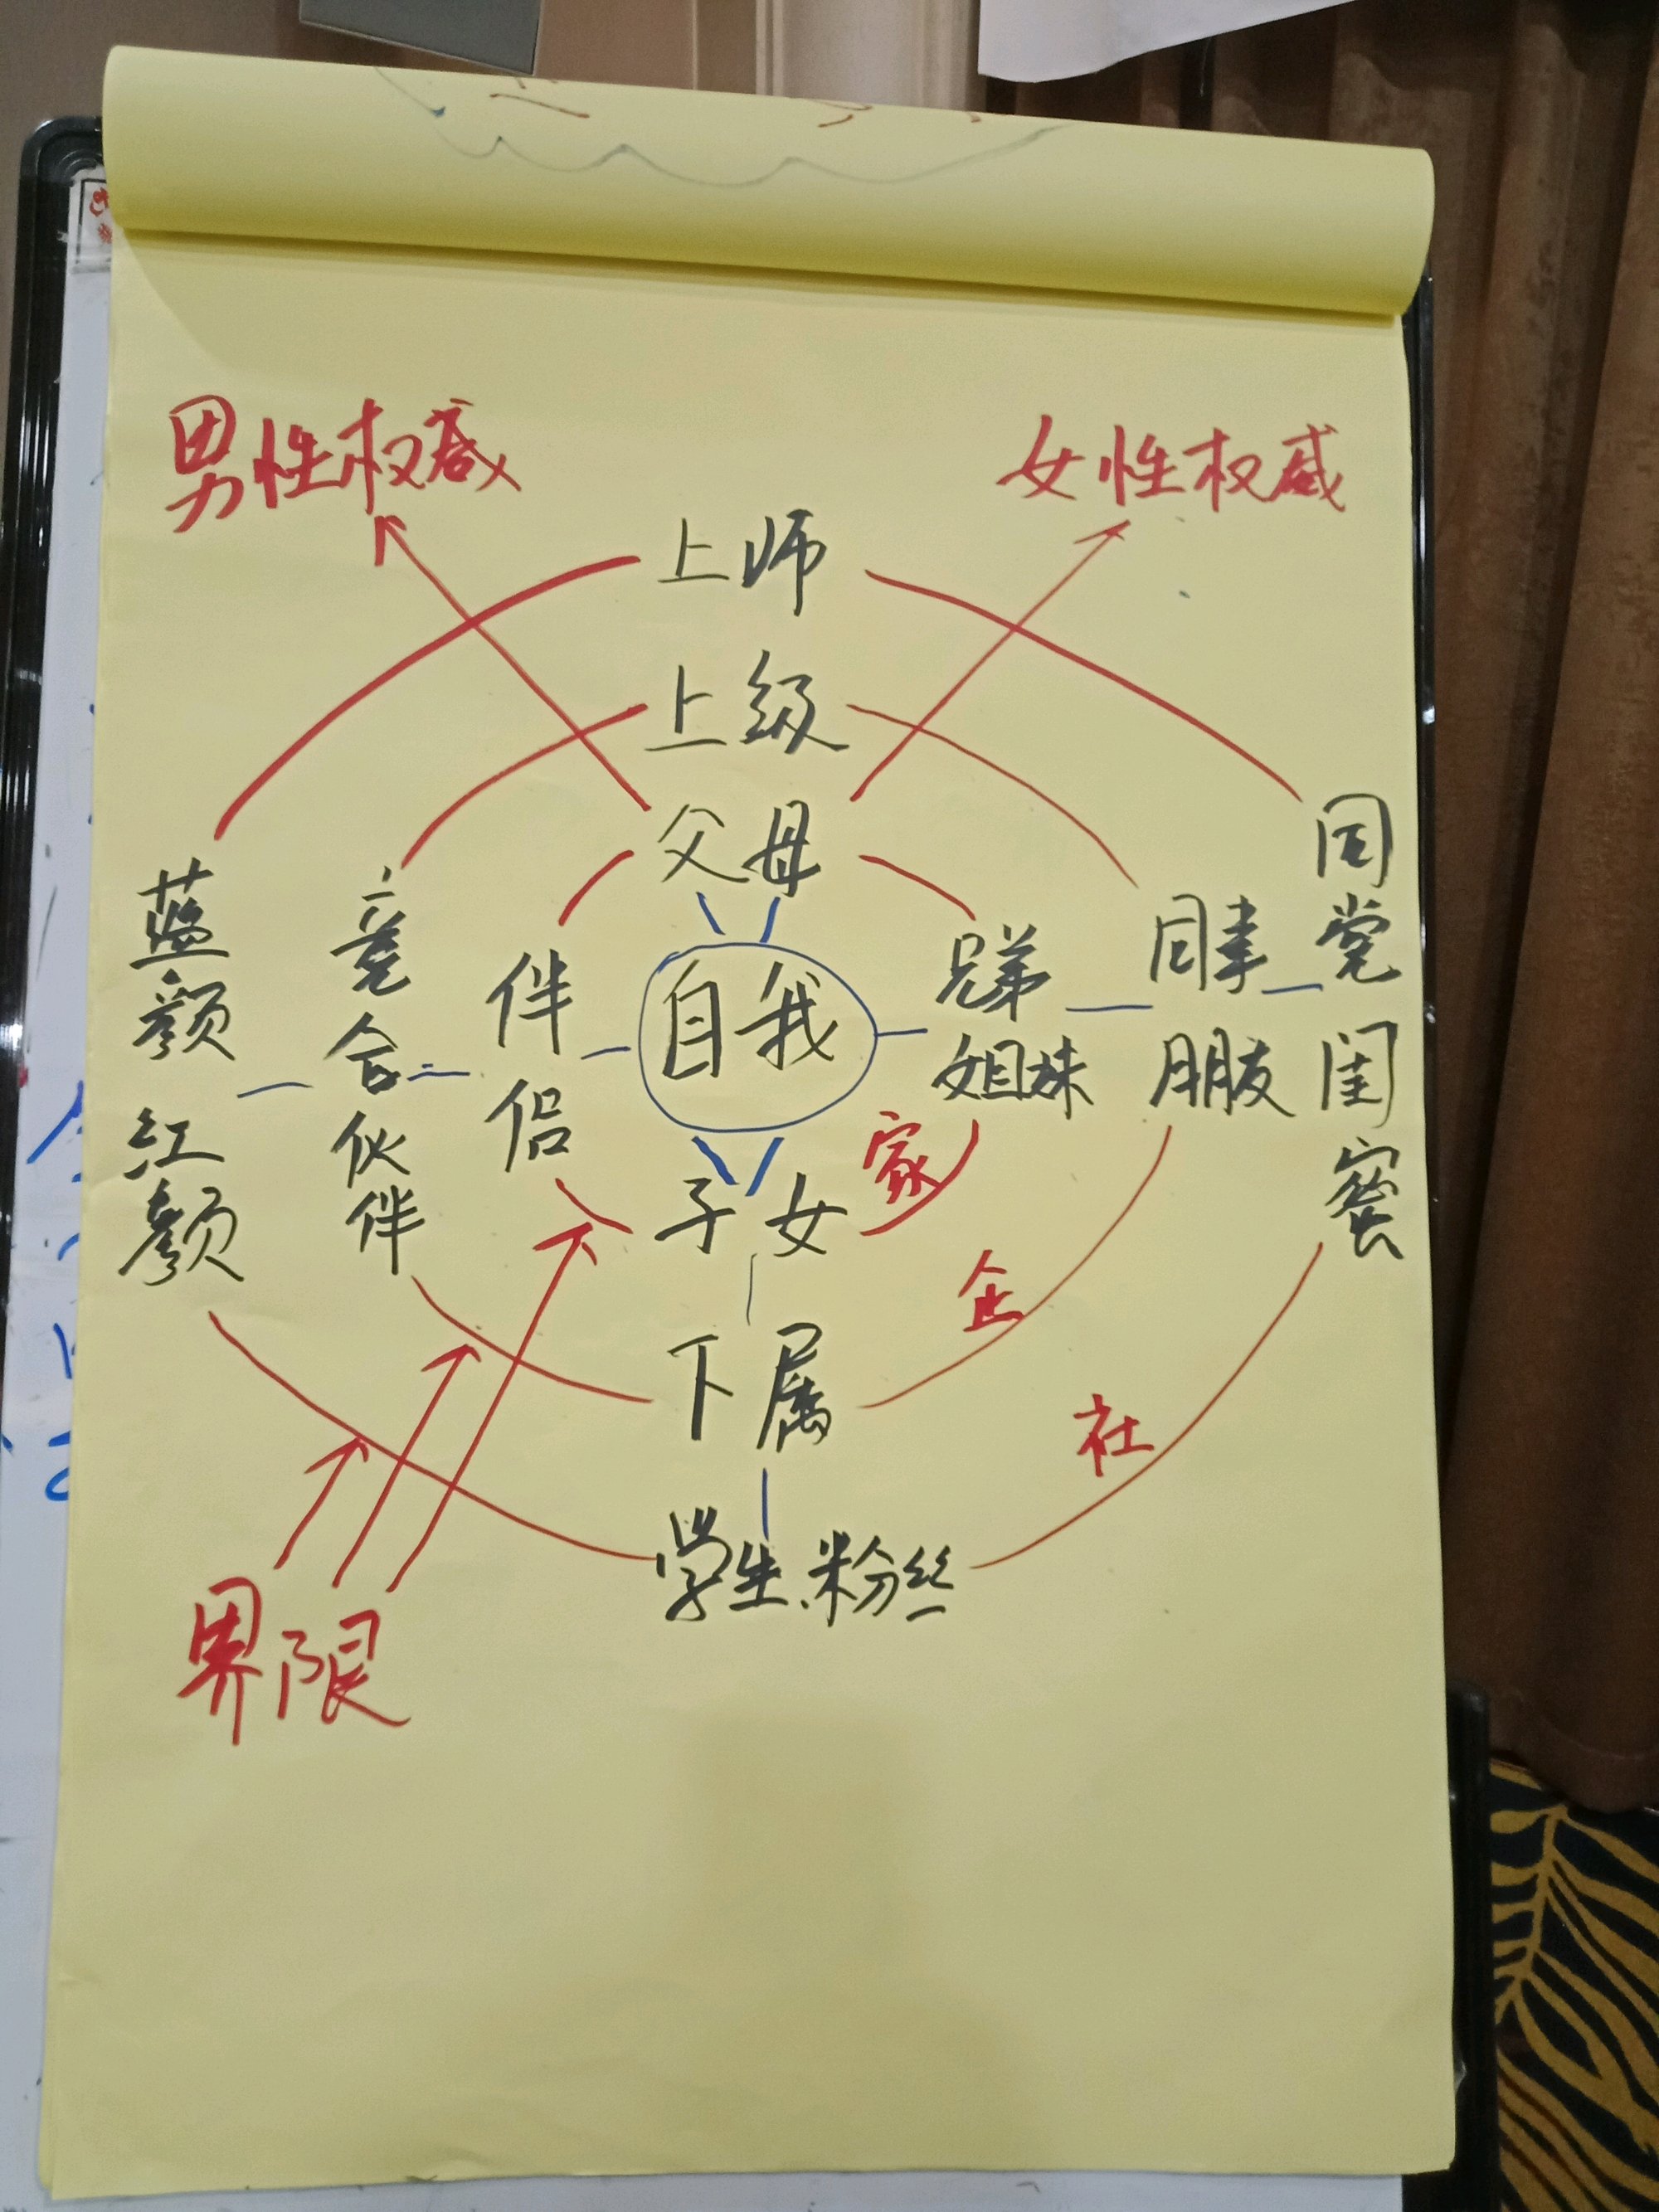 男性权威
女性权威
上师
上级
父母
蓝颜 红颜
竞合伙伴
伴侣
自我
兄弟
姐妹
同事
朋友
同党 闺蜜
子女
家
下属
企
社
学生.粉丝
界限